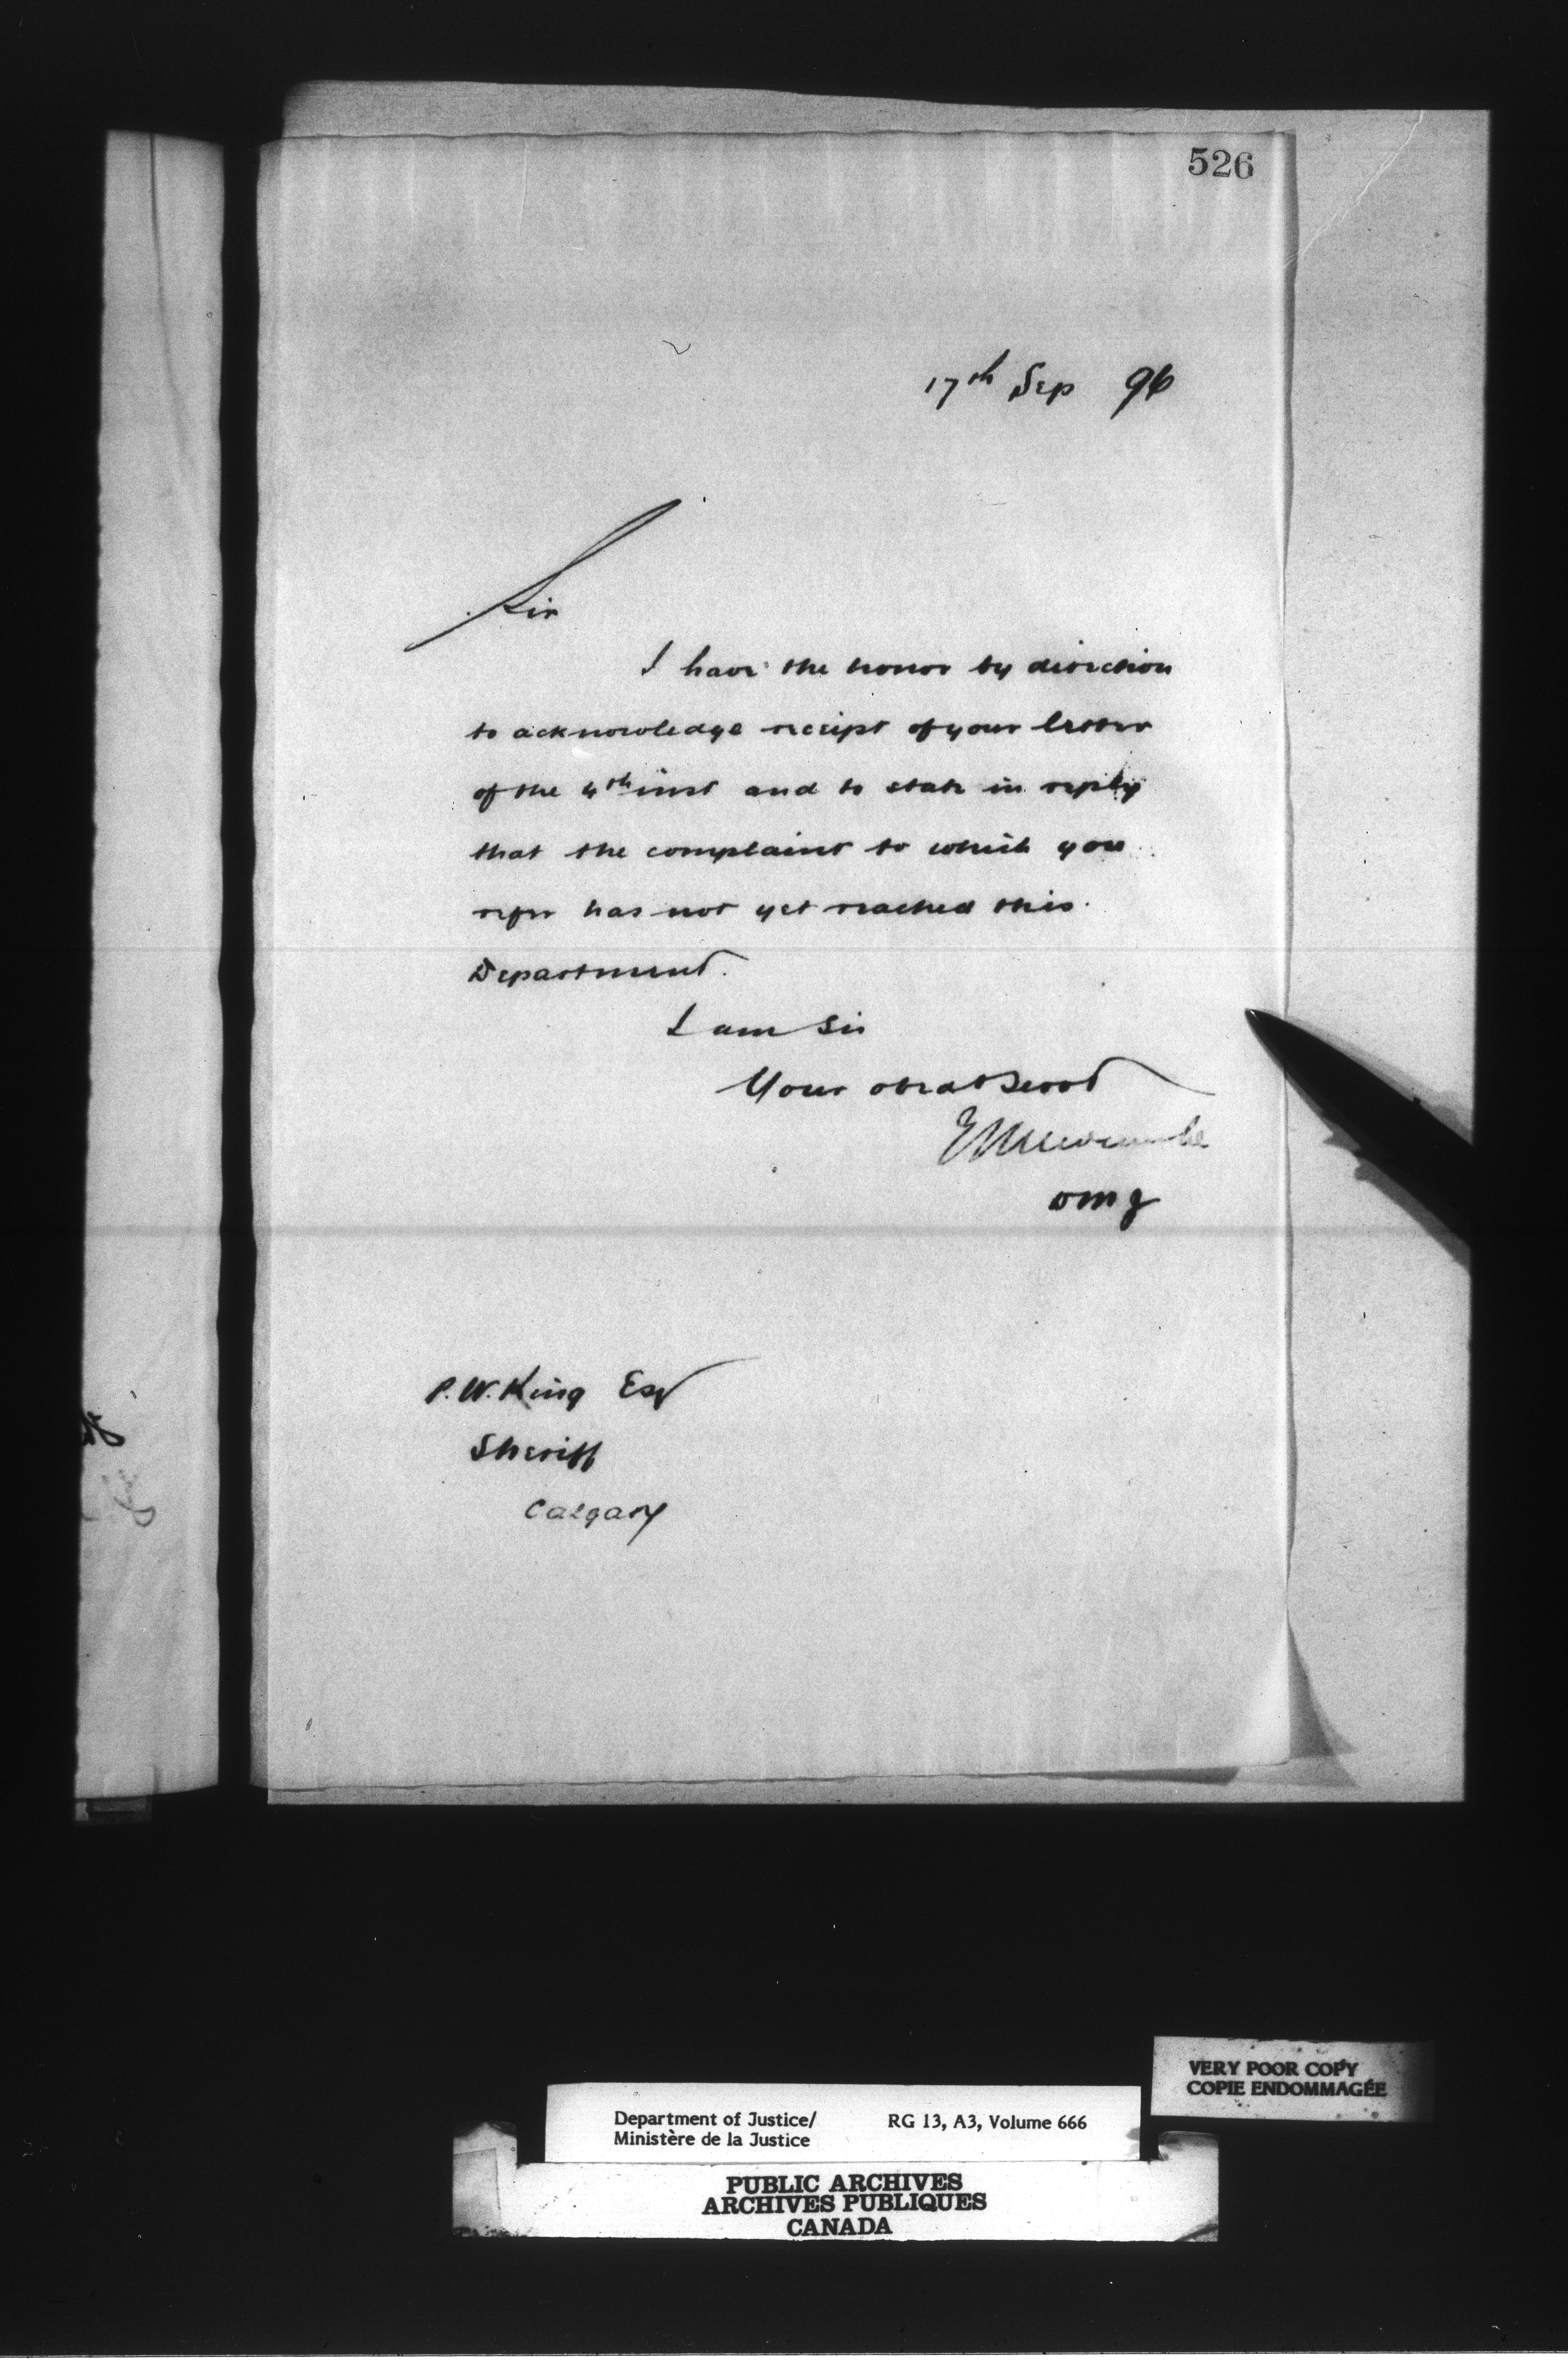 526
17th Sep 96
Sir
I have the honor by direction
to acknowledge receipt of your letter
of the 4th inst and to state in reply
that the complaint to which you
refer has not yet reached this
Department.
I am Sir
Your obedt Servt
E L Newcombe
DMJ
P. W. King Esq
Sheriff
Calgary
VERY POOR COPY
COPIE ENDOMMAGÉE
Department of Justice/ RG 13, A3, Volume 666
Ministère de la Justice
PUBLIC ARCHIVES
ARCHIVES PUBLIQUES
CANADA